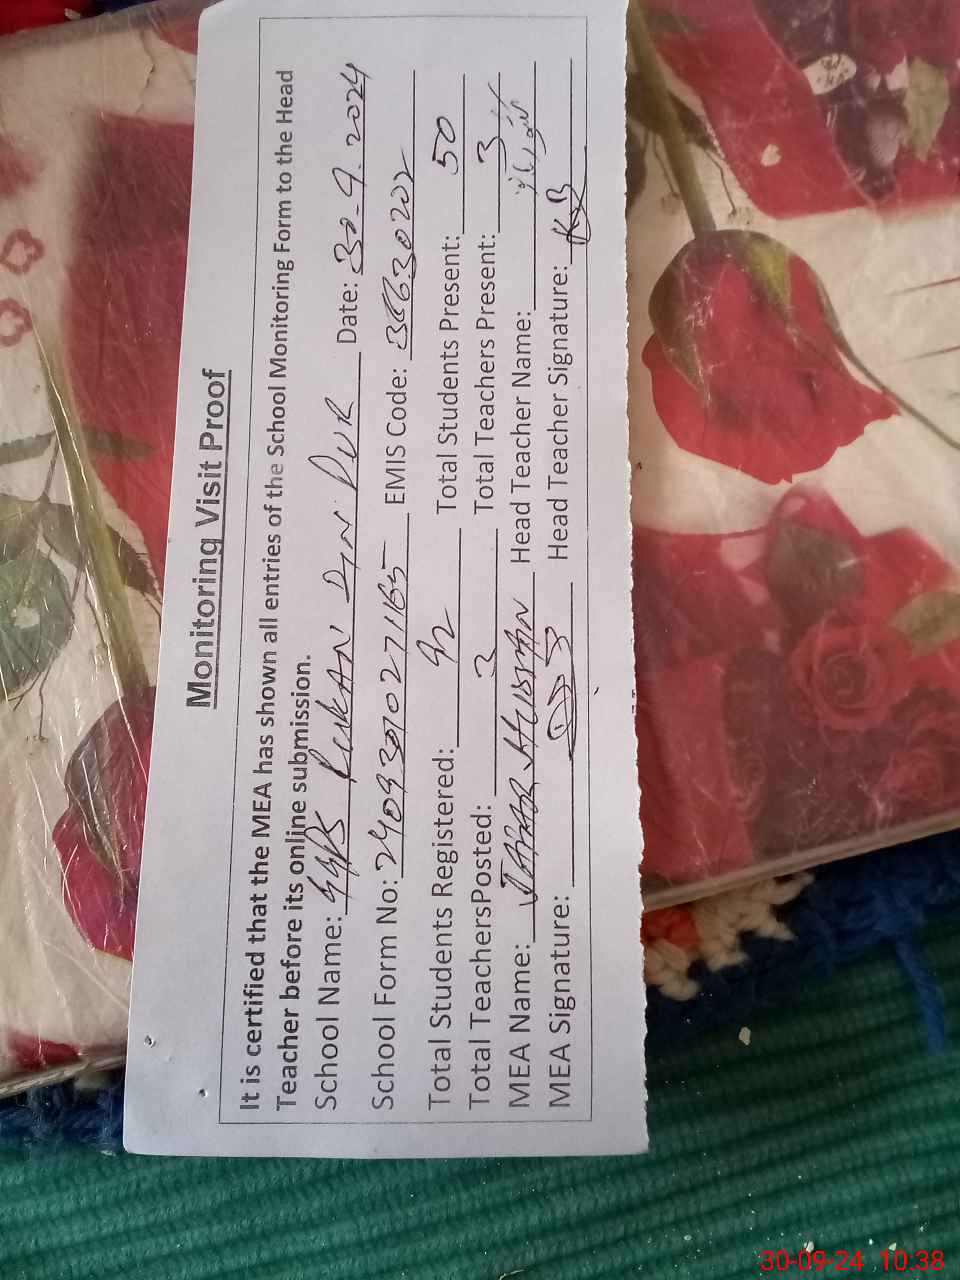 Monitoring Visit Proof
It is certified that the MEA has shown all entries of the School Monitoring Form to the Head
Teacher before its online submission.
School Name: GGPS RUKAN DIN PUR Date: 30-9-2024
School Form No: EMIS Code:
Total Students Registered: 92 Total Students Present: 50
Total TeachersPosted: 3 Total Teachers Present: 3
MEA Name: Head Teacher Name:
MEA Signature: Head Teacher Signature:
30-09-24 10:38